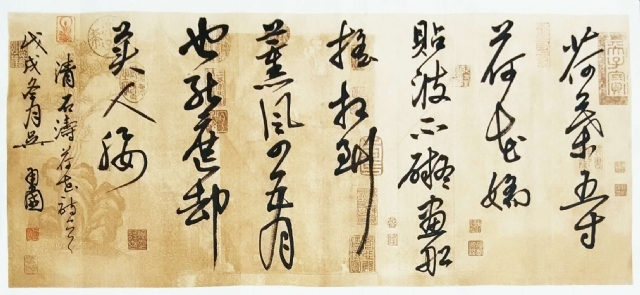 荷葉五寸
荷花嬌
貼波不礙畫船
搖相到
薰風四五月
也能遮却
美人腰
清石濤荷花詩
戊戌冬月吳